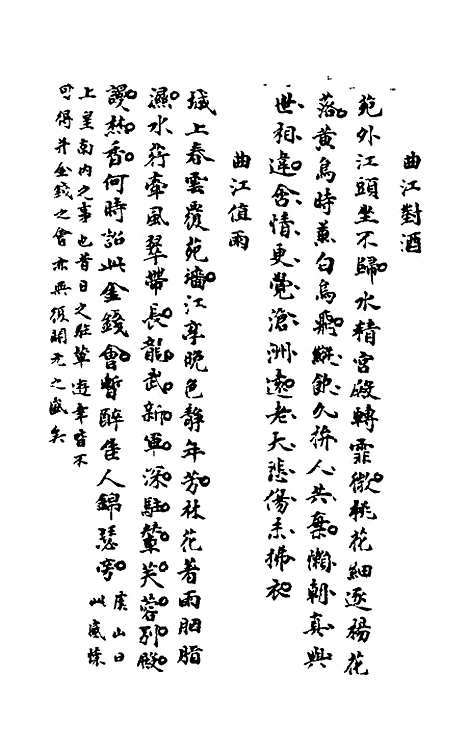 曲江對酒
苑外江頭坐不歸水精宮殿轉霏微桃花細逐楊花
落黃鳥時兼白鳥飛縱飲久拚人共棄懶朝真與
世相違含情更覺滄洲遠老大悲傷未拂衣
曲江值雨
城上春雲覆苑墻江亭晚色靜年芳林花著雨胭脂
濕水荇牽風翠帶長龍武新軍深駐輦芙蓉別殿
謾焚香何時詔此金錢會暫醉佳人錦瑟旁虞山曰
此感懷
上皇南內之事也昔日之駐輦遊幸皆不
可得并金錢之會亦無復開元之盛矣